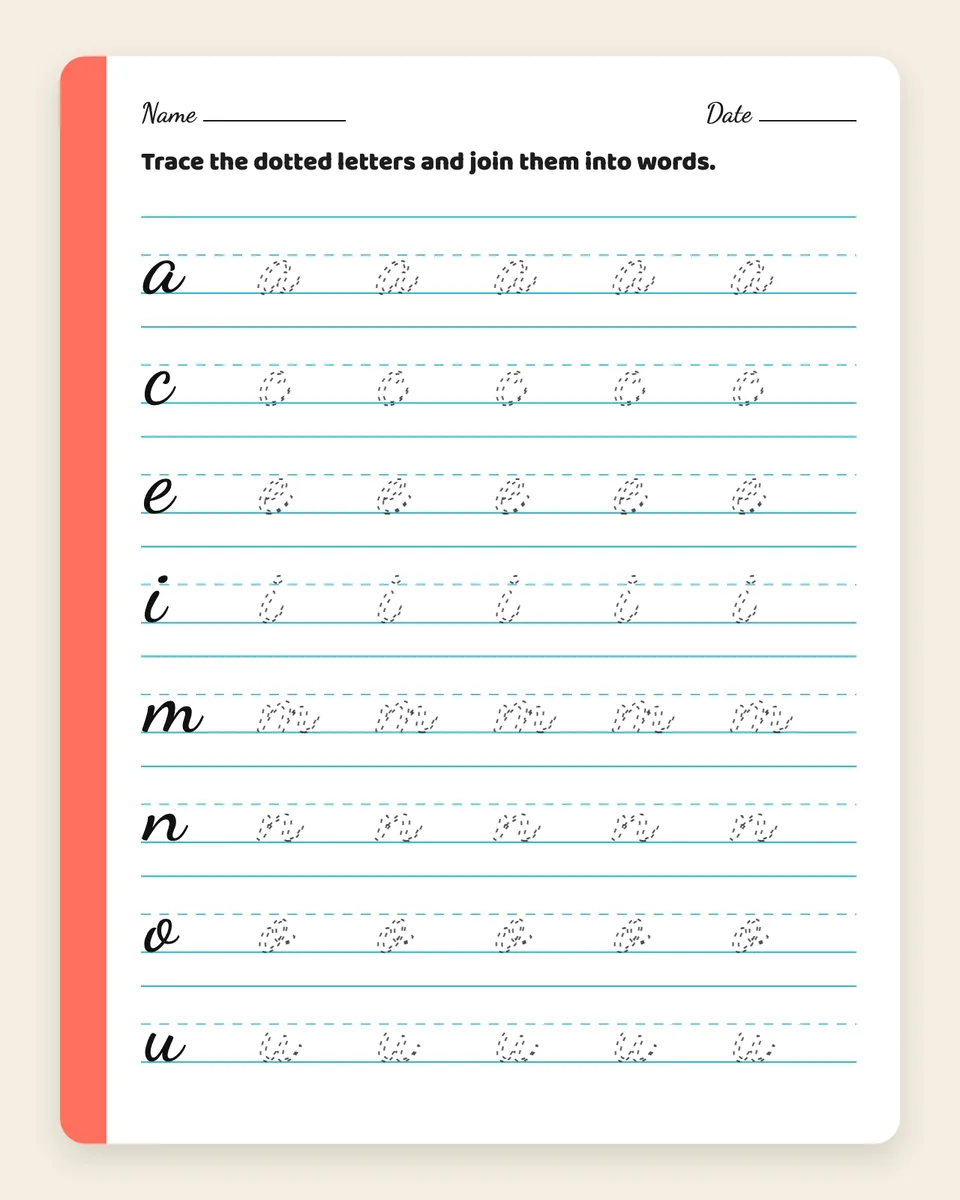 Name Date
Trace the dotted letters and join them into words.
a a a a a a
c c c c c c
e e e e e e
i i i i i i
m m m m m m
n n n n n n
o o o o o o
u u u u u u